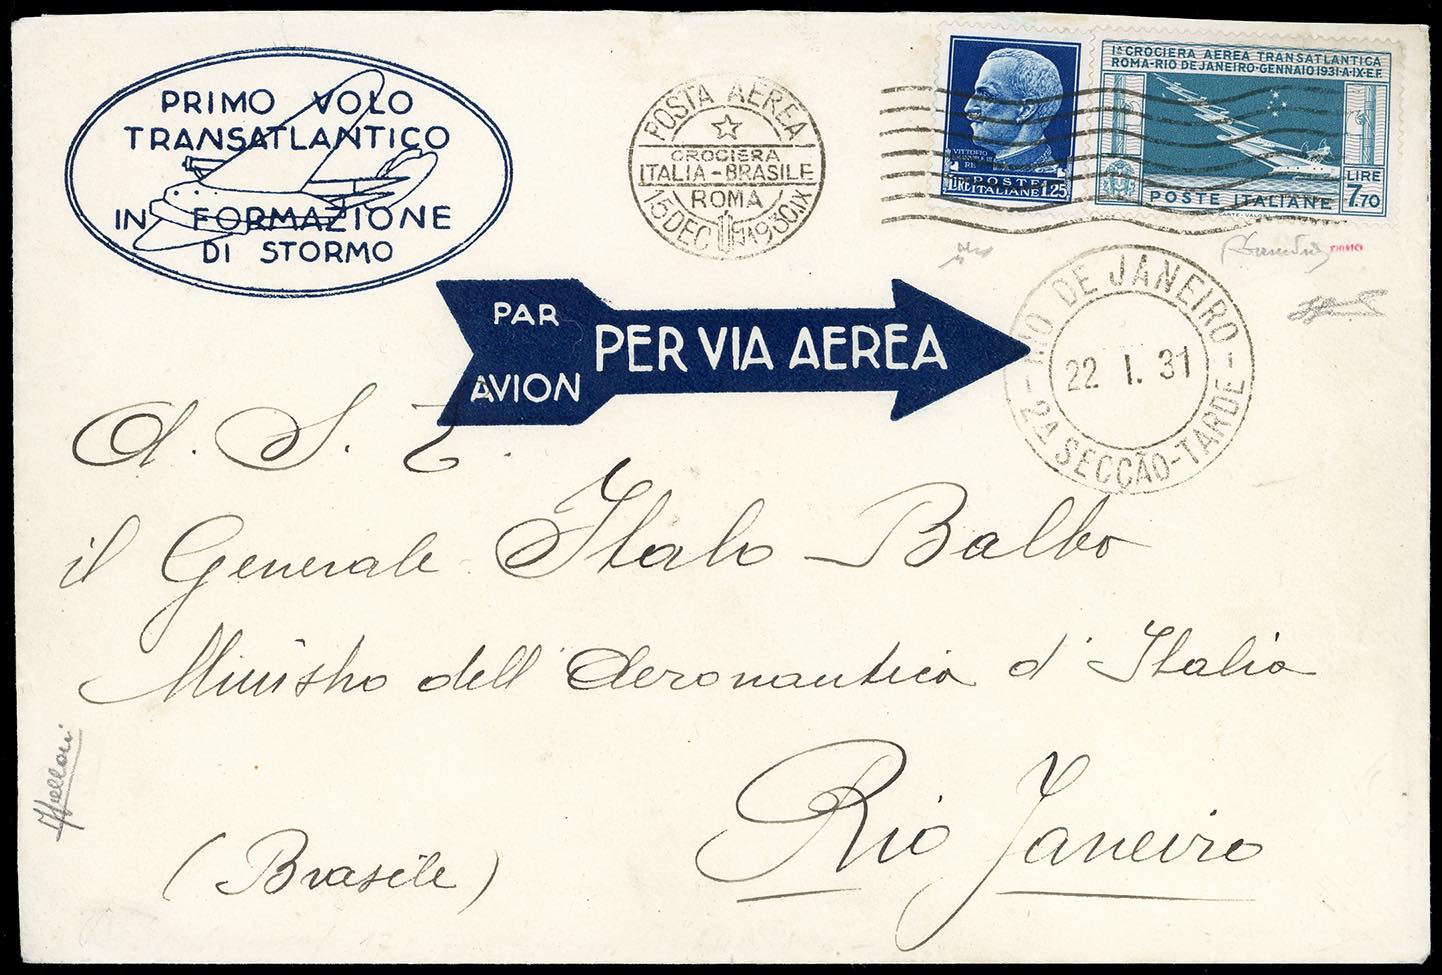 PRIMO VOLO
TRANSATLANTICO
IN FORMAZIONE
DI STORMO
POSTA AEREA
CROCIERA
ITALIA-BRASILE
ROMA
15 DEC 1930.IX
VITTORIO
RE
POSTE
LIRE ITALIANE 1,25
Iª CROCIERA AEREA TRANSATLANTICA
ROMA-RIO DE JANEIRO-GENNAIO 1931-A·IX·E.F.
LIRE
7,70
POSTE ITALIANE
PAR
AVION
PER VIA AEREA
RIO DE JANEIRO
22 I. 31
2ª SECCÃO-TARDE
A. S. E.
il Generale Italo Balbo
Ministro dell'Aeronautica d'Italia
Rio Janeiro
(Brasile)